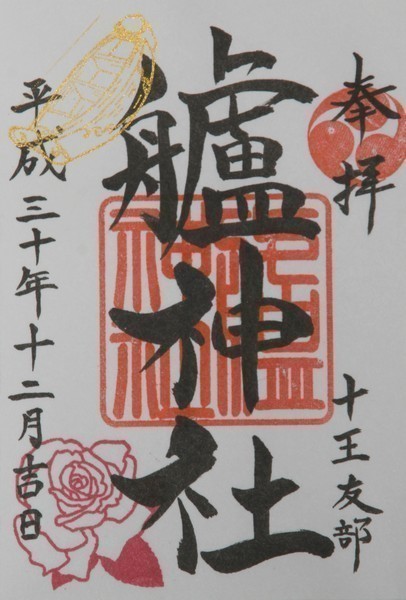 奉拝
十王友部
艫神社
平成三十年十二月吉日